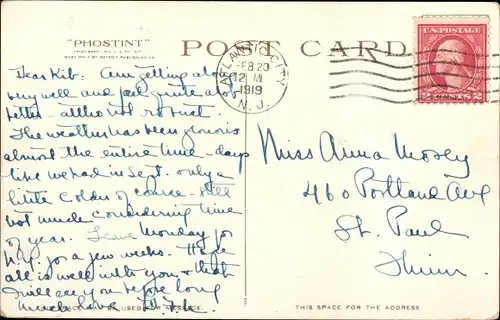 "PHOSTINT"
POST CARD
MADE ONLY BY DETROIT PUBLISHING CO.
ATLANTIC CITY
FEB 20
12 M
1919
N.J.
U.S. POSTAGE
2 CENTS 2
Dear Kit: Am getting along
very well and feel quite a lot
better - altho not robust.
The weather has been glorious
almost the entire time - days
like we had in Sept. only a
little colder of course - still
not much considering time
of year. Leave Monday for
N.Y. for a few weeks. Hope
all is well with you & that
I will see you before long
Much love
Miss Anna Mosey
460 Portland Ave
St. Paul
Minn.
THIS SPACE FOR THE ADDRESS